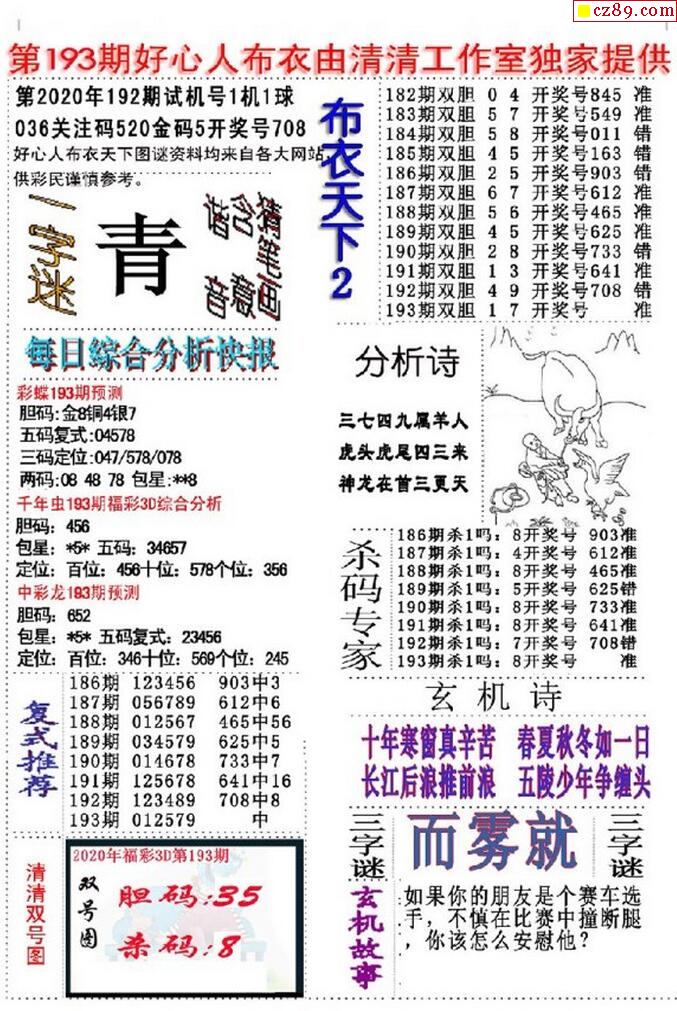 cz89.com
第193期好心人布衣由清清工作室独家提供
第2020年192期试机号1机1球
036关注码520金码5开奖号708
好心人布衣天下图谜资料均来自各大网站
供彩民谨慎参考。
一字迷
青
谐含猜
音意笔画
每日综合分析快报
彩蝶193期预测
胆码:金8铜4银7
五码复式:04578
三码定位:047/578/078
两码:08 48 78 包星:**8
千年虫193期福彩3D综合分析
胆码: 456
包星: *5* 五码: 34657
定位: 百位: 456十位: 578个位: 356
中彩龙193期预测
胆码: 652
包星: *5* 五码复式: 23456
定位: 百位: 346十位: 569个位: 245
复式推荐
186期 123456 903中3
187期 056789 612中6
188期 012567 465中56
189期 034579 625中5
190期 014678 733中7
191期 125678 641中16
192期 123489 708中8
193期 012579 中
清清双号图
2020年福彩3D第193期
双号图
胆码:35
杀码:8
布衣天下2
182期双胆 0 4 开奖号845 准
183期双胆 5 7 开奖号549 准
184期双胆 5 8 开奖号011 错
185期双胆 4 5 开奖号163 错
186期双胆 2 5 开奖号903 错
187期双胆 6 7 开奖号612 准
188期双胆 5 6 开奖号465 准
189期双胆 4 5 开奖号625 准
190期双胆 2 8 开奖号733 错
191期双胆 1 3 开奖号641 准
192期双胆 4 9 开奖号708 错
193期双胆 1 7 开奖号 准
分析诗
三七四九属羊人
虎头虎尾四三来
神龙在首三更天
杀码专家
186期杀1吗: 8开奖号 903准
187期杀1吗: 4开奖号 612准
188期杀1吗: 8开奖号 465准
189期杀1吗: 5开奖号 625错
190期杀1吗: 8开奖号 733准
191期杀1吗: 8开奖号 641准
192期杀1吗: 7开奖号 708错
193期杀1吗: 8开奖号 准
玄机诗
十年寒窗真辛苦 春夏秋冬如一日
长江后浪推前浪 五陵少年争缠头
三字谜
而雾就
三字谜
玄机故事
如果你的朋友是个赛车选
手，不慎在比赛中撞断腿
，你该怎么安慰他?